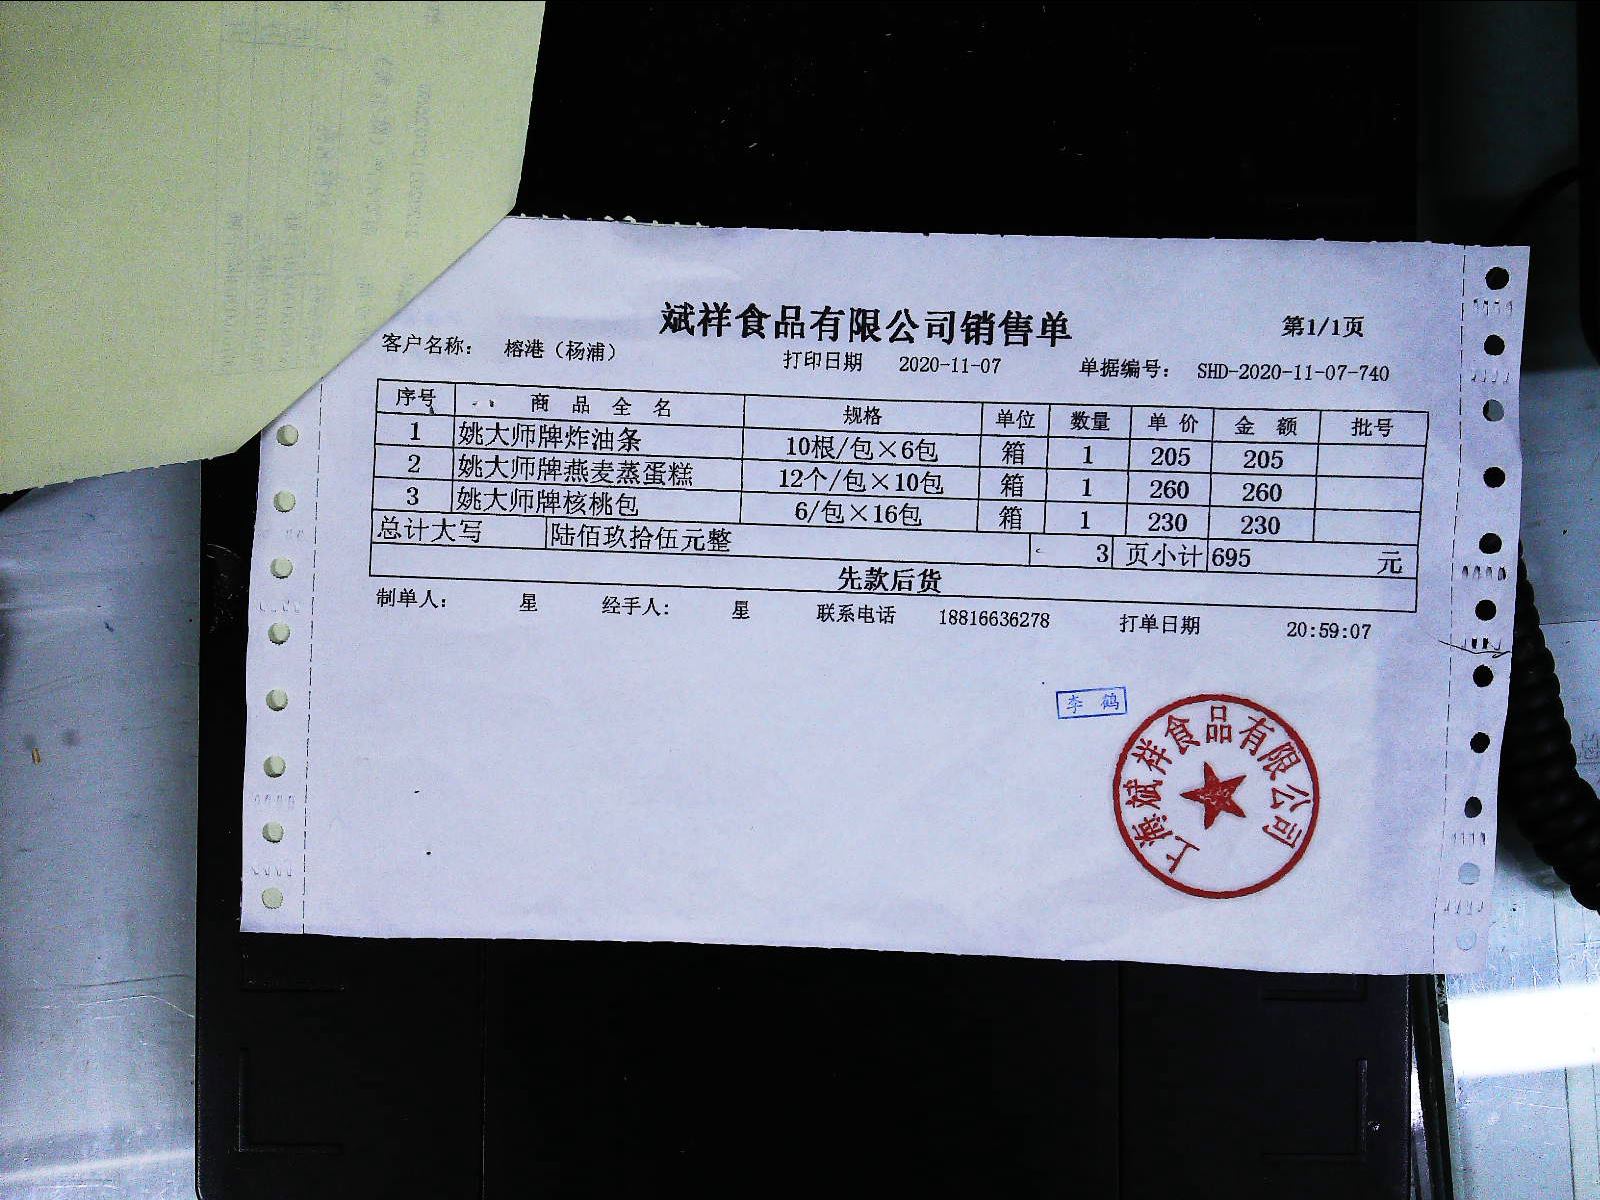 斌祥食品有限公司销售单 第1/1页
客户名称： 榕港（杨浦） 打印日期 2020-11-07 单据编号： SHD-2020-11-07-740
序号 商品全名 规格 单位 数量 单价 金额 批号
1 姚大师牌炸油条 10根/包×6包 箱 1 205 205
2 姚大师牌燕麦蒸蛋糕 12个/包×10包 箱 1 260 260
3 姚大师牌核桃包 6/包×16包 箱 1 230 230
总计大写 陆佰玖拾伍元整 3 页小计 695 元
先款后货
制单人： 星 经手人： 星 联系电话 18816636278 打单日期 20:59:07
李鹤
上海斌祥食品有限公司